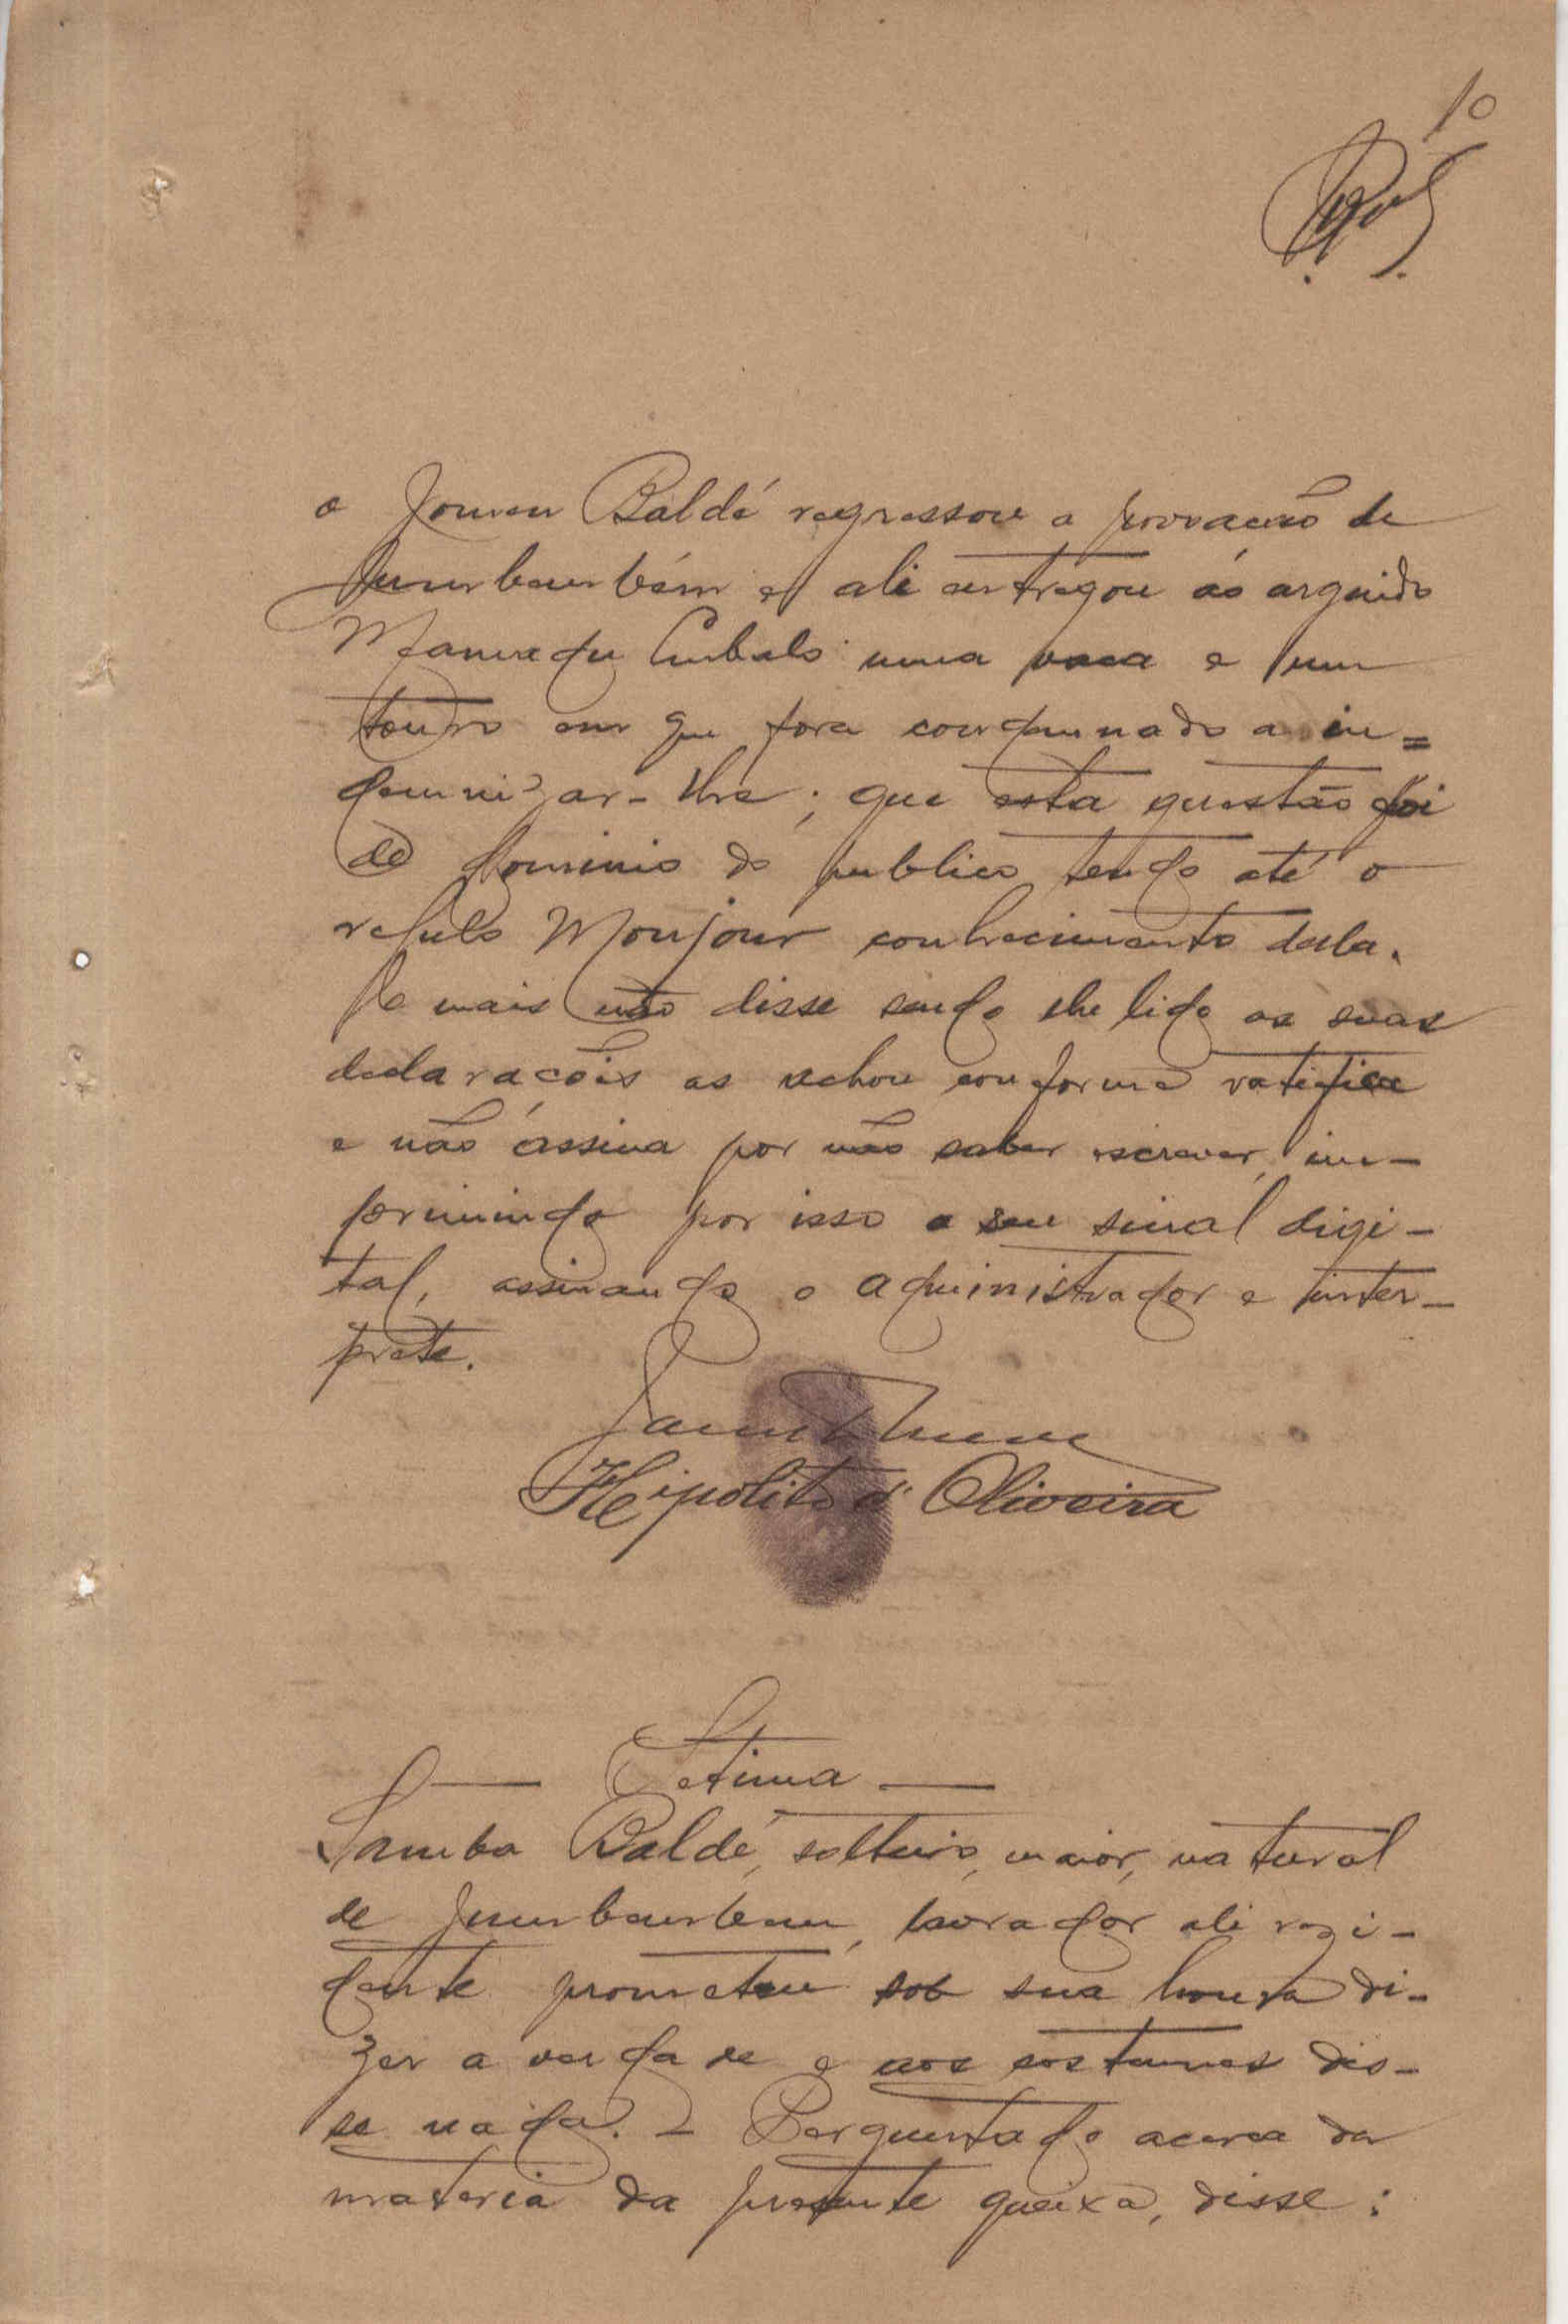 10
o Joven Baldé regressou a povoação de
Jumbembém e ali entregou áo arguido
Mamadu Embaló uma vaca e um
touro em que fora condemnado a in=
demnizar-lhe; que esta questão foi
do dominio do publico tendo até o
regulo Monjour conhecimento dela.
E mais não disse sendo lhe lido as suas
declarações as achou conforme ratifica
e não assina por não saber escrever, im-
primindo por isso o seu sinal digi-
tal, assinando o administrador e inter-
prete.
Hipolito d'Oliveira
— Setima —
Samba Baldé, solteiro, maior, natural
de Jumbembem, lavrador ali rezi-
dente prometeu sob sua honra di-
zer a verdade e aos costumes dis-
se nada. - Perguntado acerca da
materia da presente queixa, disse: